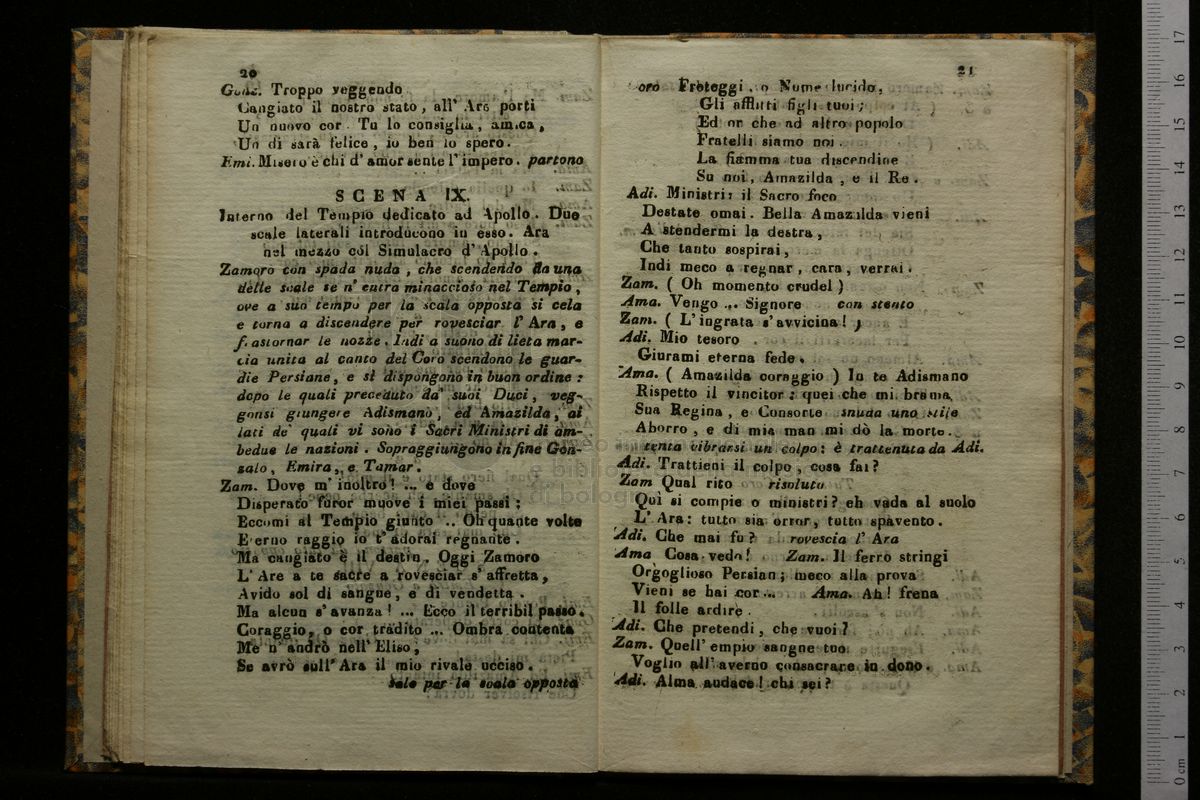 20
Gonz. Troppo veggendo
Cangiato il nostro stato, all' Are porti
Un nuovo cor. Tu lo consiglia, amica,
Un dì sarà felice, io ben lo spero.
Emi. Misero è chi d' amor sente l' impero. partono
SCENA IX.
Interno del Tempio dedicato ad Apollo. Due
scale laterali introducono in esso. Ara
nel mezzo col Simulacro d' Apollo.
Zamoro con spada nuda, che scendendo da una
delle scale se n' entra minaccioso nel Tempio,
ove a suo tempo per la scala opposta si cela
e torna a discendere per rovesciar l' Ara, e
frastornar le nozze. Indi a suono di lieta mar-
cia unita al canto del Coro scendono le guar-
die Persiane, e si dispongono in buon ordine:
dopo le quali preceduto da' suoi Duci, veg-
gonsi giungere Adismano, ed Amazilda, ai
lati de' quali vi sono i Sacri Ministri di am-
bedue le nazioni. Sopraggiungono in fine Gon-
salo, Emira, e Tamar.
Zam. Dove m' inoltro! ... e dove
Disperato furor muove i miei passi;
Eccomi al Tempio giunto .. Oh quante volte
Eterno raggio io t' adorai regnante.
Ma cangiato è il destin. Oggi Zamoro
L' Are a te sacre a rovesciar s' affretta,
Avido sol di sangue, e di vendetta.
Ma alcun s' avanza! ... Ecco il terribil passo.
Coraggio, o cor tradito ... Ombra contenta
Me n' andrò nell' Eliso,
Se avrò sull' Ara il mio rivale ucciso.
Sale per la scala opposta
21
Coro Proteggi, o Nume lucido,
Gli afflitti figli tuoi;
Ed or che ad altro popolo
Fratelli siamo noi.
La fiamma tua discendine
Su noi, Amazilda, e il Re.
Adi. Ministri: il Sacro foco
Destate omai. Bella Amazilda vieni
A stendermi la destra,
Che tanto sospirai,
Indi meco a regnar, cara, verrai.
Zam. ( Oh momento crudel )
Ama. Vengo ... Signore con stento
Zam. ( L' ingrata s' avvicina! )
Adi. Mio tesoro
Giurami eterna fede.
Ama. ( Amazilda coraggio ) In te Adismano
Rispetto il vincitor: quei che mi brama
Sua Regina, e Consorte snuda uno stile
Aborro, e di mia man mi dò la morte.
tenta vibrarsi un colpo: è trattenuta da Adi.
Adi. Trattieni il colpo, cosa fai?
Zam Qual rito risoluto
Quì si compie o ministri? eh vada al suolo
L' Ara: tutto sia orror, tutto spavento.
Adi. Che mai fu? rovescia l' Ara
Ama Cosa vedo! Zam. Il ferro stringi
Orgoglioso Persian; meco alla prova
Vieni se hai cor ... Ama. Ah! frena
Il folle ardire.
Adi. Che pretendi, che vuoi?
Zam. Quell' empio sangue tuo
Voglio all' averno consacrare in dono.
Adi. Alma audace! chi sei?